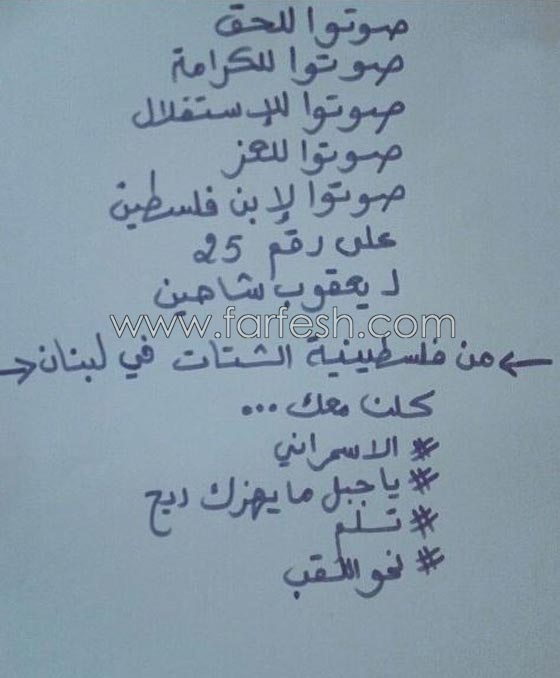 صوتوا للحق
صوتوا للكرامة
صوتوا للإستقلال
صوتوا للعز
صوتوا لإبن فلسطين
على رقم 25
ل يعقوب شاهين
www.farfesh.com
← من فلسطينية الشتات في لبنان →
كلنا معك ...
# الاسمراني
# يا جبل ما يهزك ريح
# تسلم
# نحو اللقب